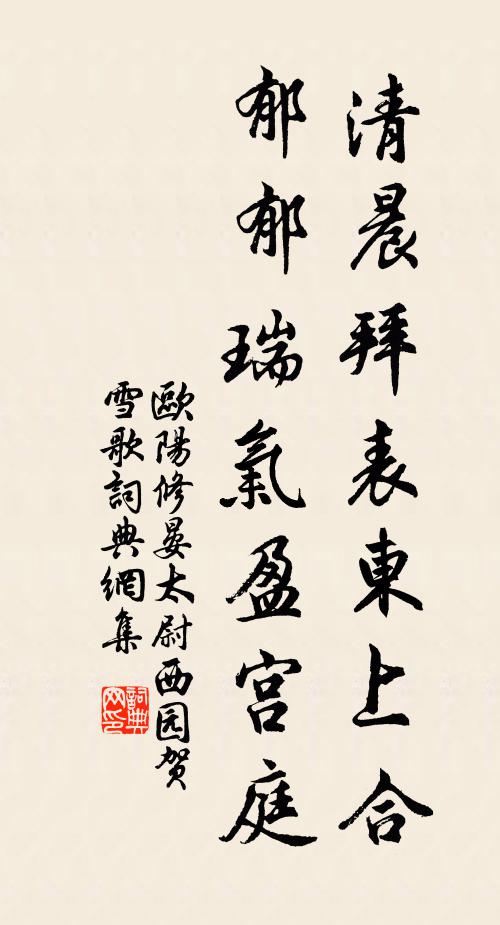 清晨拜表東上合
郁郁瑞氣盈宮庭
歐陽修晏太尉西园贺
雪歌詞典網集
詞典网印